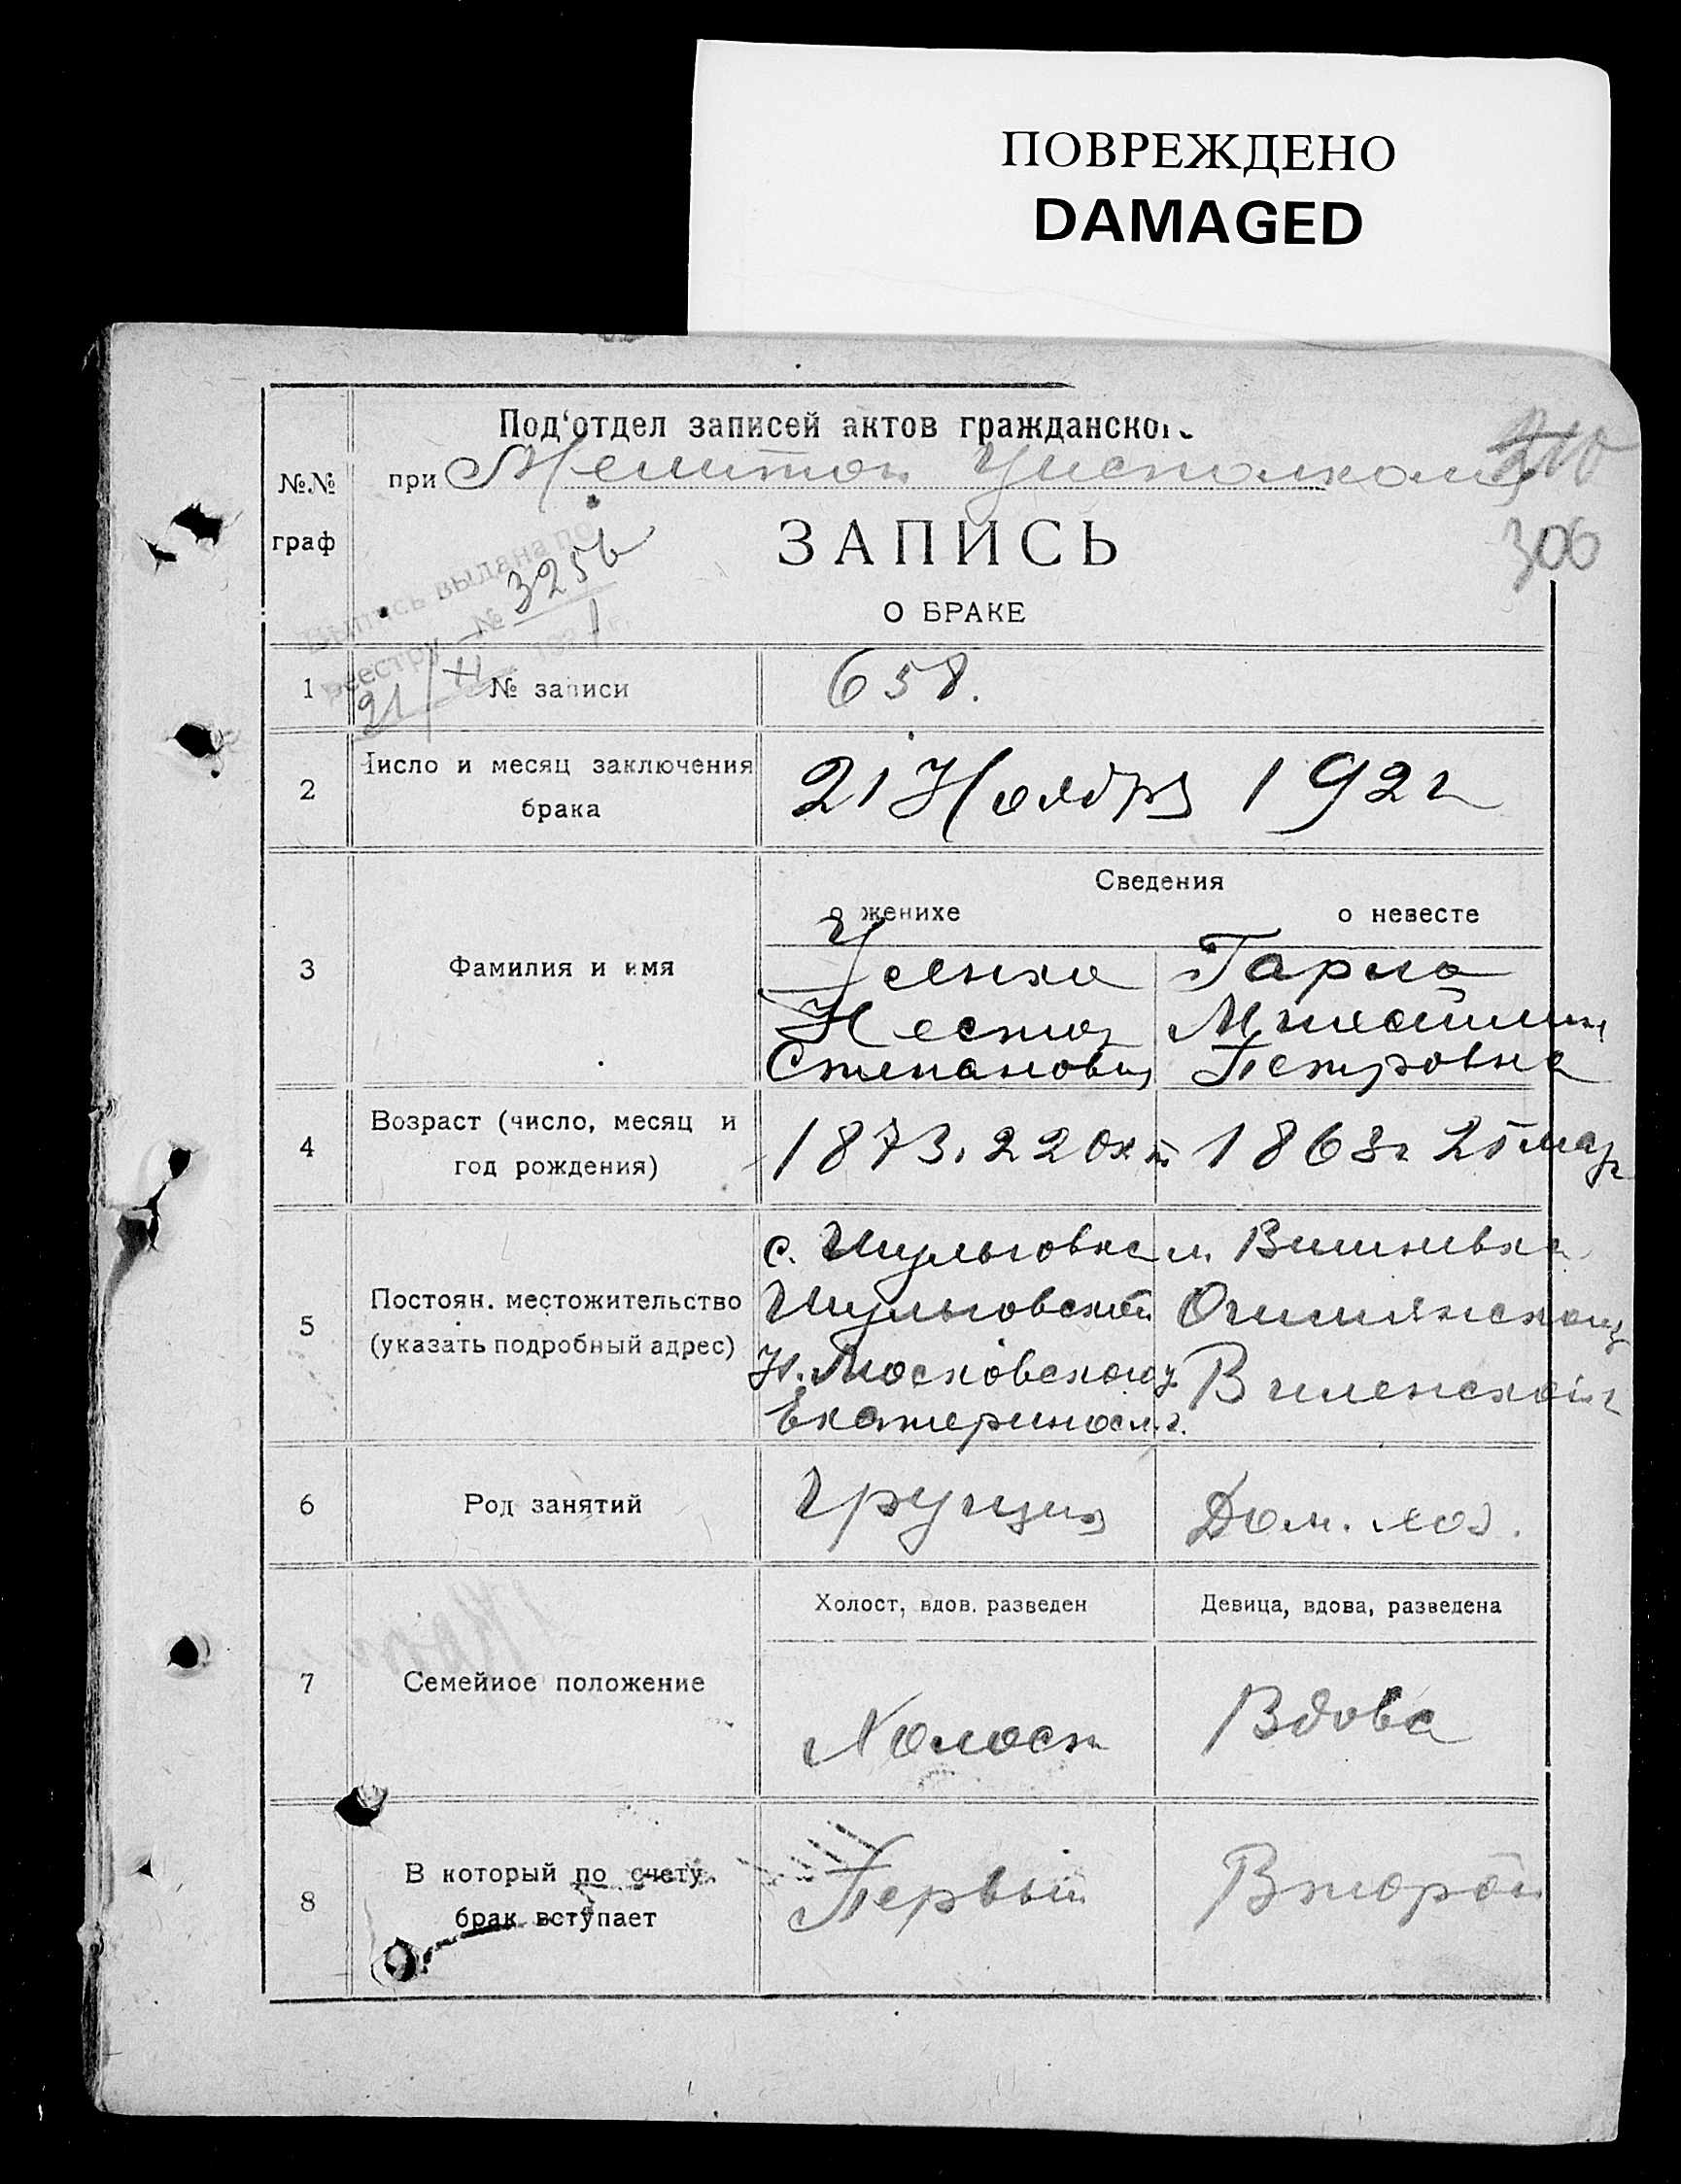 ПОВРЕЖДЕНО
DAMAGED
Под‘отдел записей актов гражданског
№№ граф
при Мелитоп Уисполкома
210
306
ЗАПИСЬ
О БРАКЕ
Выпись выдана по
реестру № 3256
21/XI 1921 г.
1 № записи 658.
2 Число и месяц заключения брака 21 Ноября 192 г
Сведения
о женихе о невесте
3 Фамилия и имя
Нестор
Степанович Петровна
4 Возраст (число, месяц и год рождения) 1873. 22 окт 1863г 25 мар
5 Постоян. местожительство (указать подробный адрес)
с. Шульговка м. Вишневка
Шульговской Ошмянского у
Н. Московского у. Виленской г
Екатериносл. г.
6 Род занятий Грузчик Дом. хоз.
Холост, вдов. разведен Девица, вдова, разведена
7 Семейное положение Холост Вдова
8 В который по счету брак вступает Первый Второй